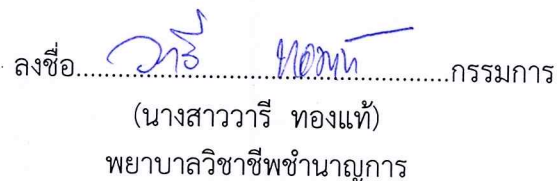 ลงชื่อ......วารี ทองแท้......กรรมการ
(นางสาววารี ทองแท้)
พยาบาลวิชาชีพชำนาญการ